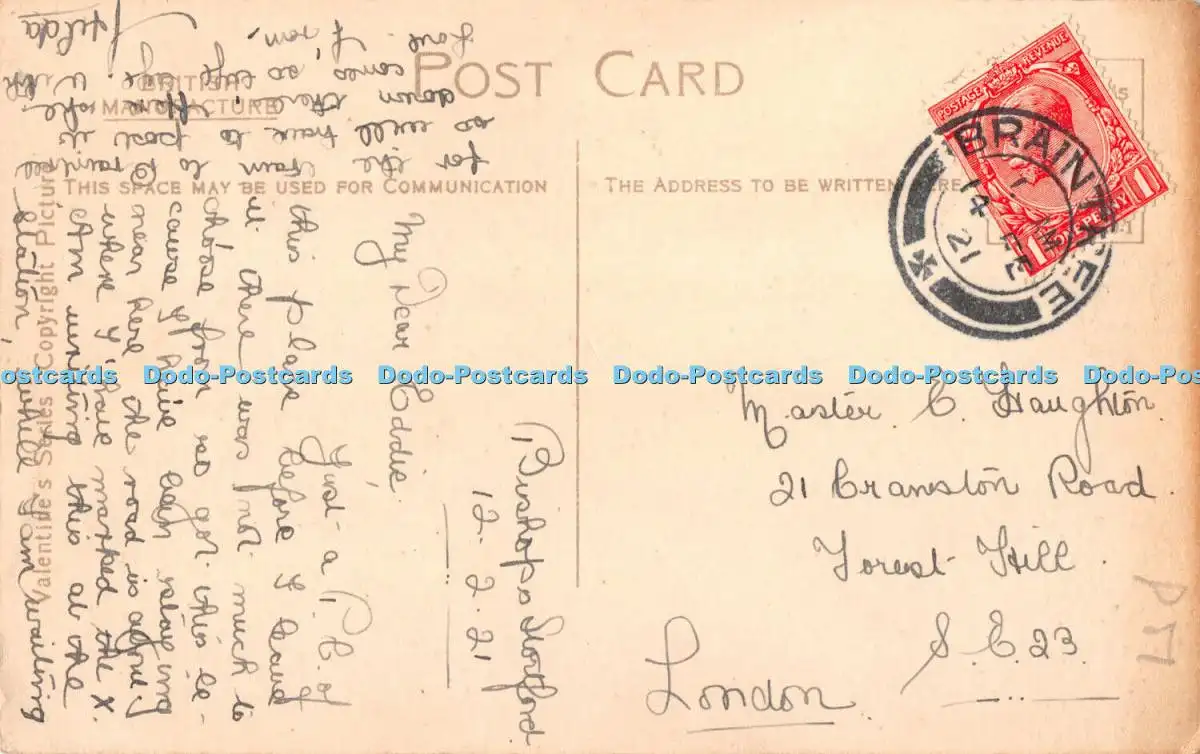 POST CARD
BRITISH
MANUFACTURE
THIS SPACE MAY BE USED FOR COMMUNICATION
THE ADDRESS TO BE WRITTEN HERE
Valentine's Series Copyright Picture
POSTAGE REVENUE
1 PENNY 1
BRAINTREE
14 FE
21
Bishops Stortford
12.2.21
My Dear Eddie,
Just a P.C. of
this place before I leave
it there was not much to
choose from so got this be-
cause I have been staying
near here the road is
where I have marked the X.
Am writing this at the
station, while I am waiting
for the train to Braintree
so will have to post it
down there.
comes so safe
with
love from,
Hilda
Master E. Haughton.
21 Cranston Road.
Forest Hill.
S.E.23.
London
Dodo-Postcards Dodo-Postcards Dodo-Postcards Dodo-Postcards Dodo-Postcards Dodo-Postcards